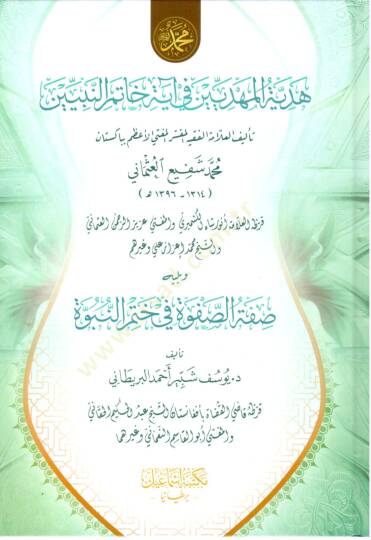 محمد
هدية المهديين في آية خاتم النبيين
تأليف العلامة الفقيه المفسر المفتي الأعظم بباكستان
محمد شفيع العثماني
(١٣١٤ - ١٣٩٦ هـ)
قرظه العلامة أنور شاه الكشميري والمفتي عزيز الرحمن العثماني
والشيخ محمد إعزاز علي وغيرهم
ويليه
صفة الصفوة في ختم النبوة
تأليف
د. يوسف شبير أحمد البريطاني
قرظه قاضي القضاة بأفغانستان الشيخ عبد الحكيم الحقاني
والمفتي أبو القاسم النعماني وغيرهما
مكتبة إسماعيل
بريطانيا